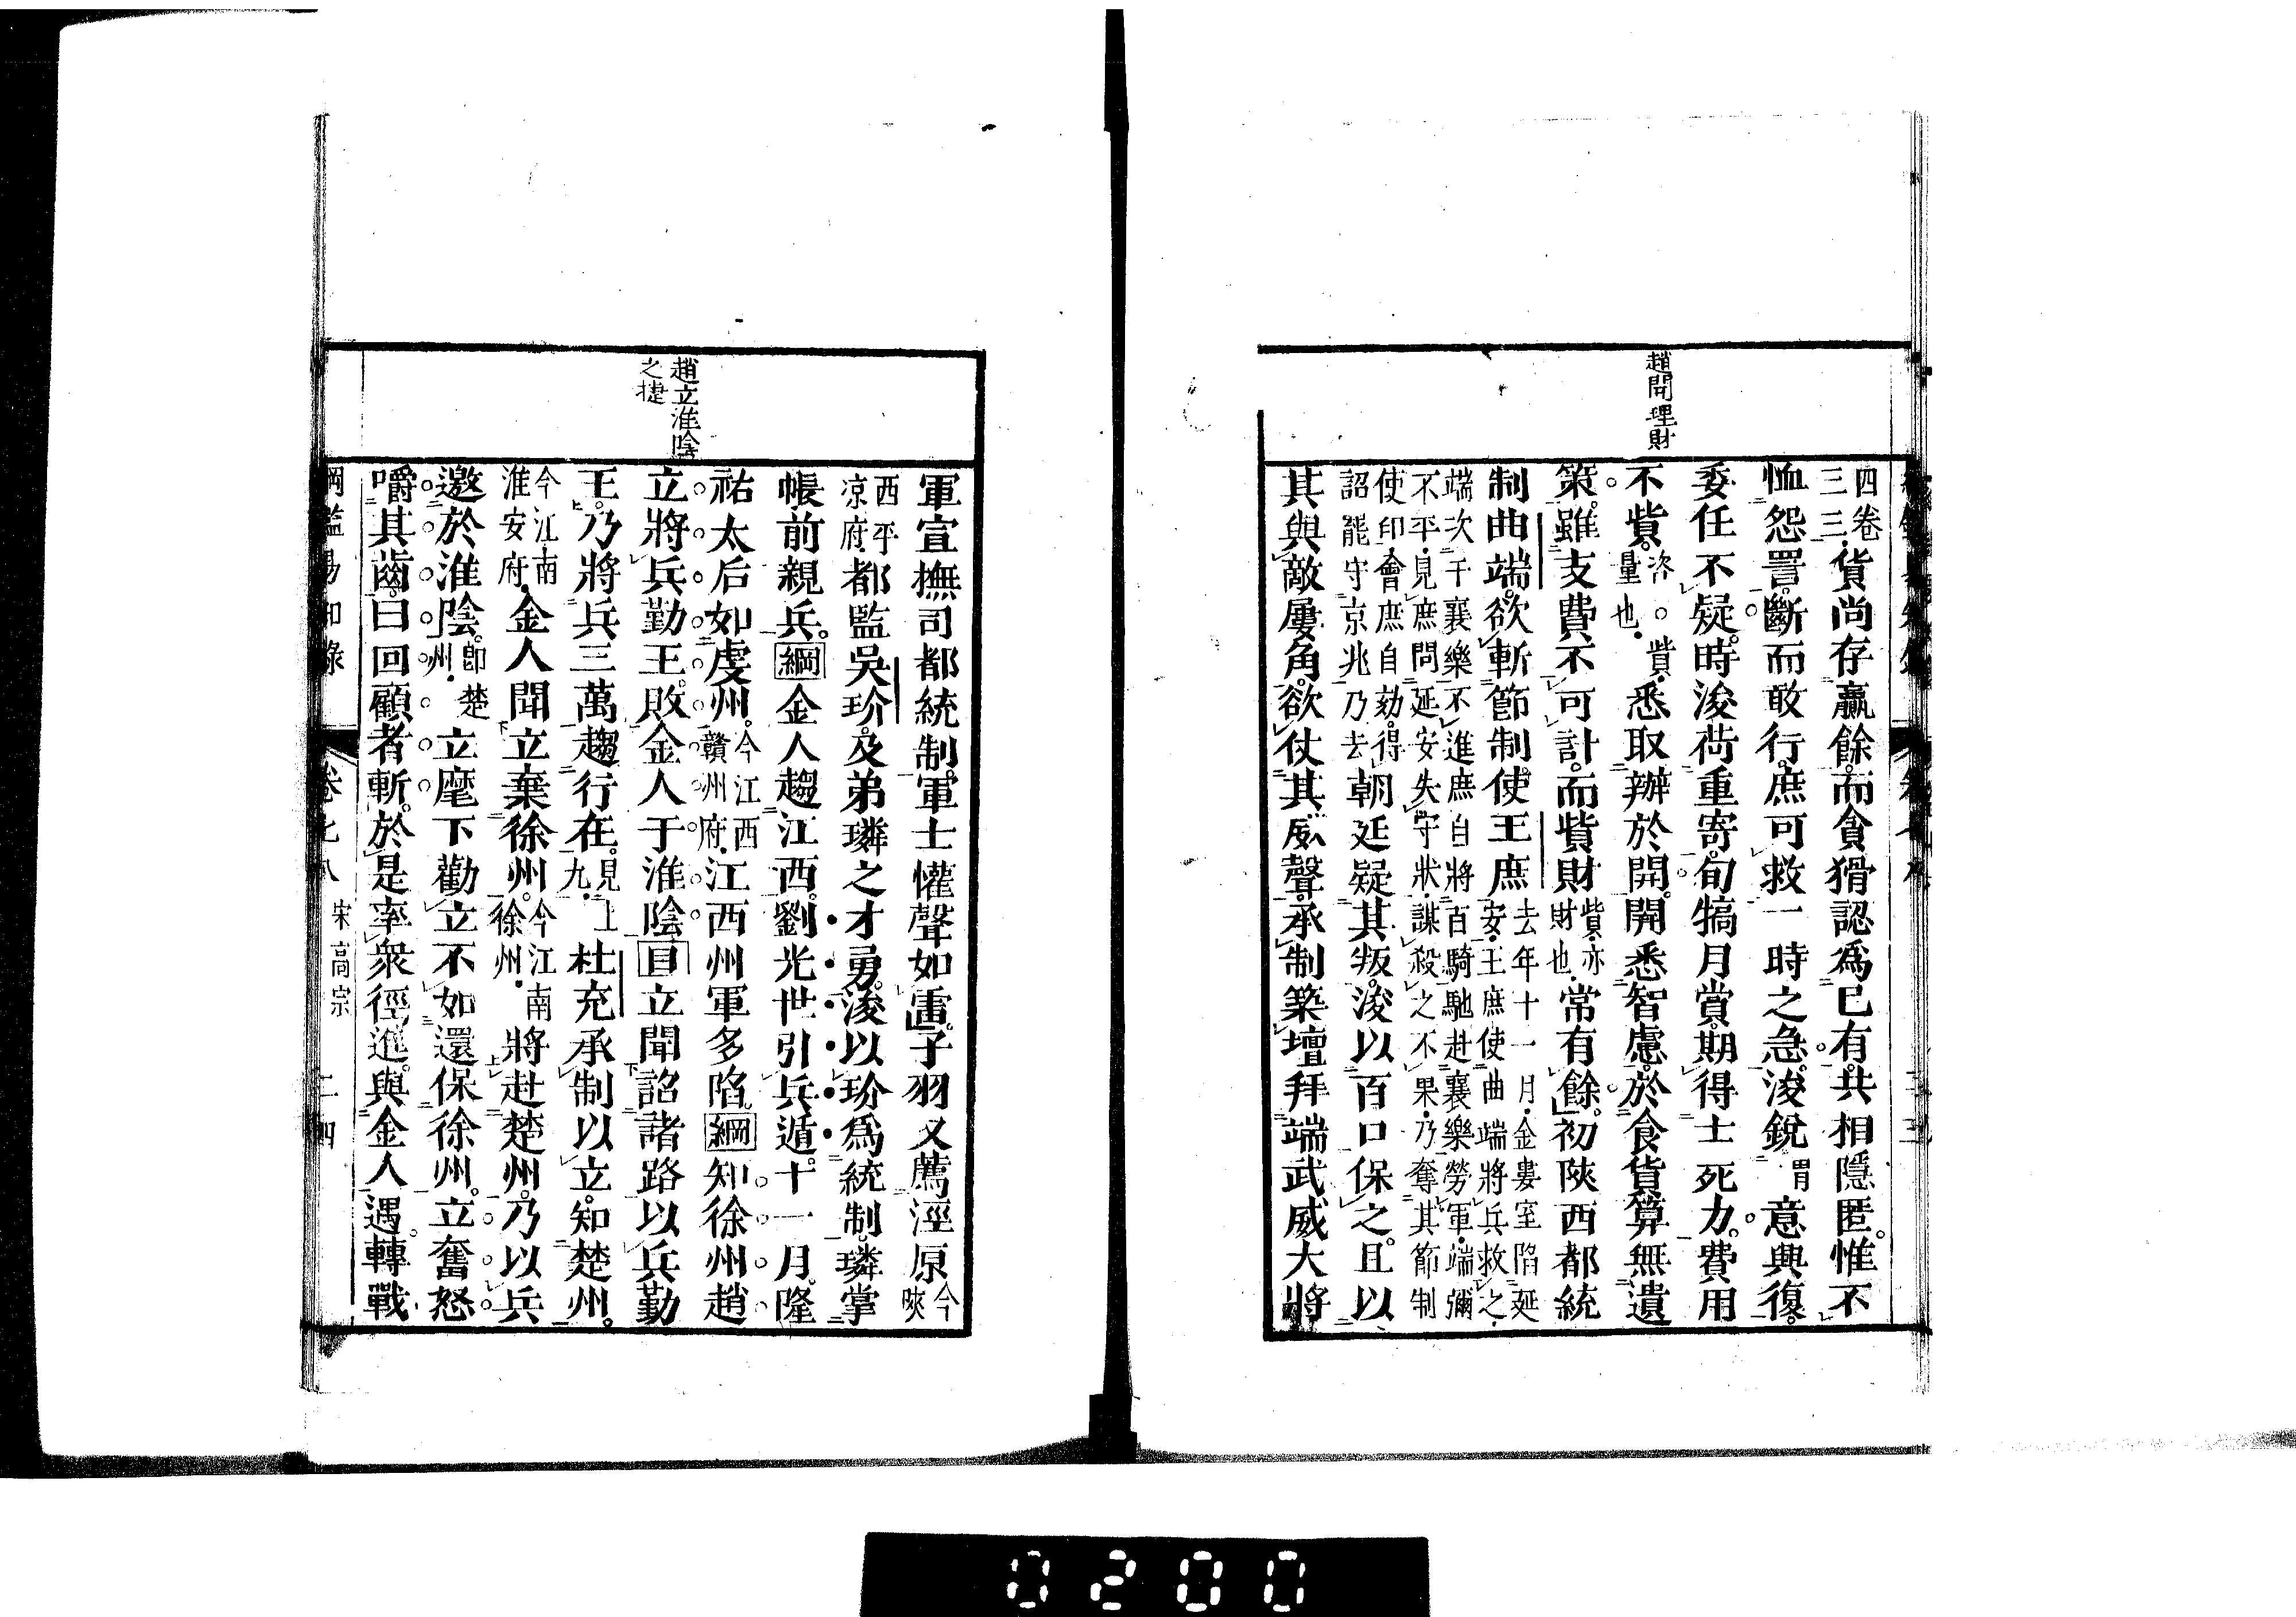 趙開理財
四卷三三貨尚存贏餘。而貪猾認爲已有。共相隱匿。惟不
恤怨詈。斷而敢行。庶可救一時之急。浚銳謂意興復。
委任不疑。時浚荷重寄。旬犒月賞。期得士死力。費用
不貲。貲。量也。悉取辦於開。開悉智慮。於食貨算無遺
策。雖支費不可計。而貲財貲。亦財也。常有餘。初陝西都統
制曲端。欲斬節制使王庶去年十一月。金婁室陷延安。王庶使曲端將兵救之。
端次于襄樂不進。庶自將百騎馳赴襄樂勞軍。端彌
不平。見庶問延安失守狀。謀殺之不果。乃奪其節制
使印。會庶自劾。得詔罷守京兆乃去朝廷疑其叛。浚以百口保之。且以
其與敵屢角。欲仗其威聲。承制築壇拜端武威大將
趙立淮陰
之捷
軍宣撫司都統制。軍士懽聲如雷。子羽又薦涇原今陝
西平凉府。都監吳玠。及弟璘之才勇。浚以玠爲統制。璘掌
帳前親兵。綱金人趨江西。劉光世引兵遁。十一月。隆
祐太后如虔州。今江西贛州府。江西州軍多陷。綱知徐州趙
立將兵勤王。敗金人于淮陰目立聞詔諸路以兵勤
王。乃將兵三萬趨行在。見上九。杜充承制以立。知楚州。
今江南淮安府。金人聞立棄徐州。今江南徐州。將赴楚州。乃以兵
邀於淮陰。卽楚州。立麾下勸立不如還保徐州。立奮怒
嚼其齒。曰回顧者斬。於是率衆徑進。與金人遇。轉戰
綱鑑易知錄 卷七八 宋高宗 二四
0200